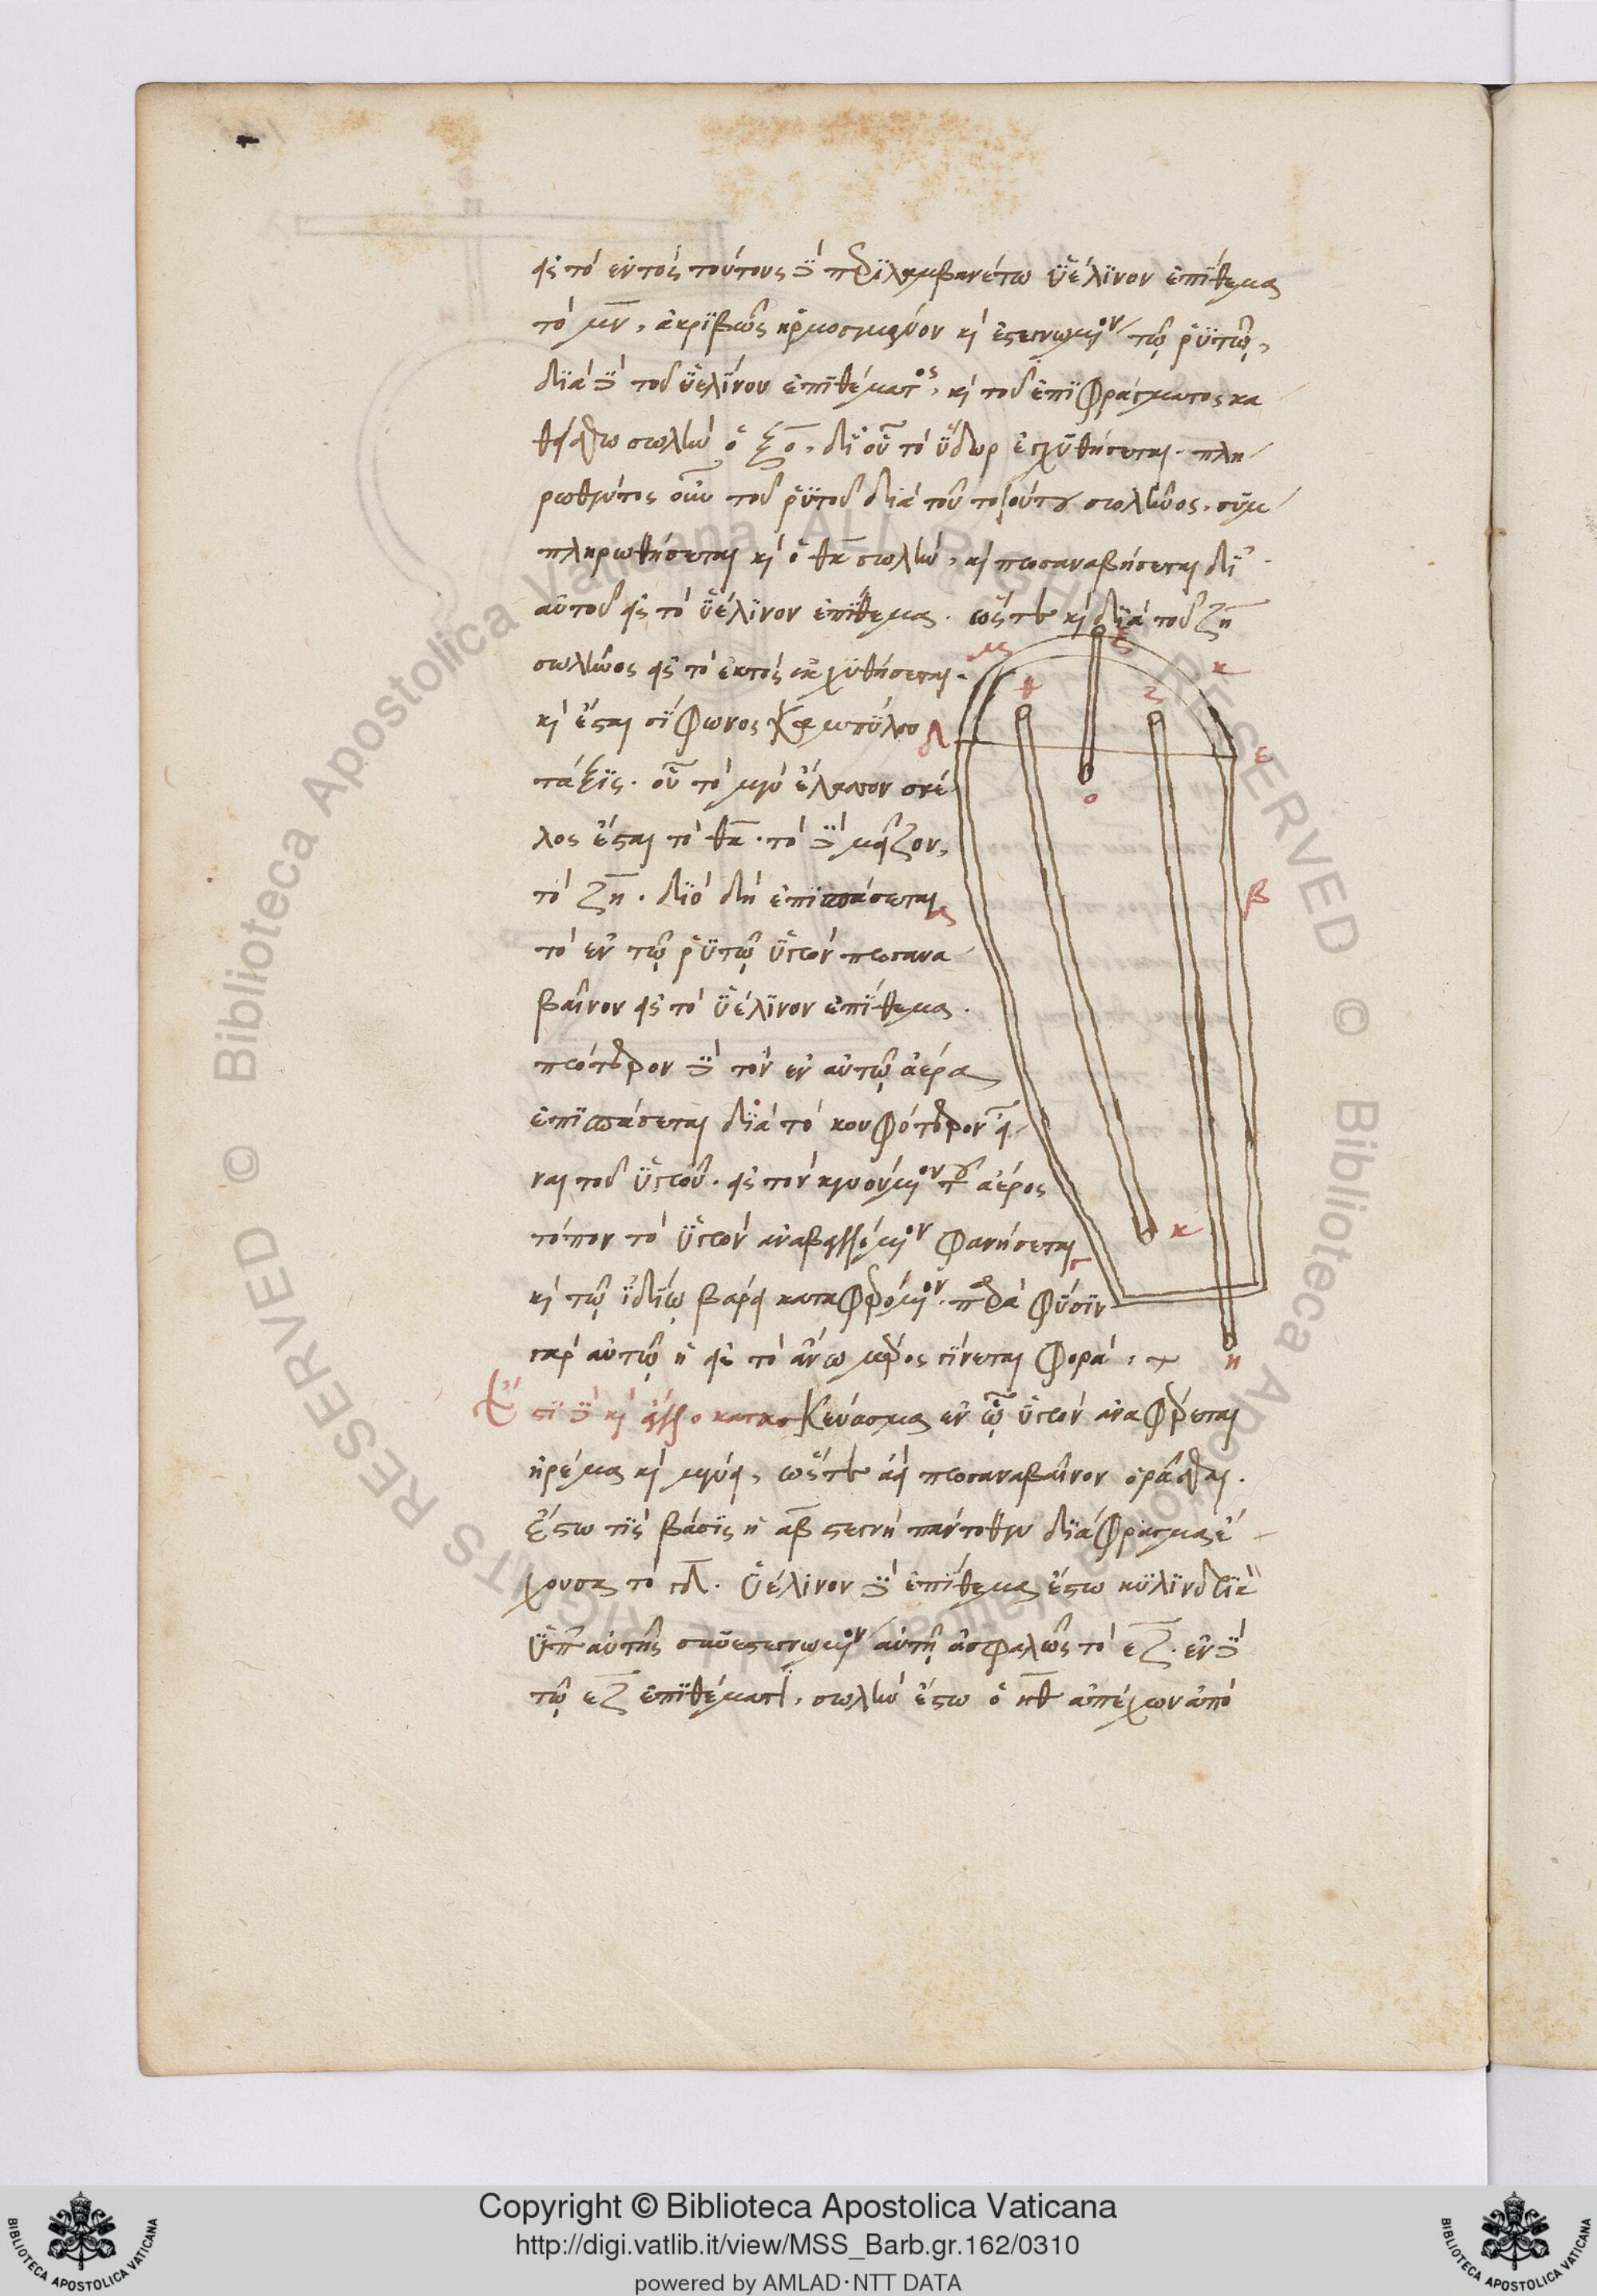 εἰς τὸ ἐντὸς τούτους δὲ περιλαμβανέτω ὑέλινον ἐπίθεμα
τὸ μν, ἀκριβῶς ἡρμοσμένον καὶ ἐστεγνωμένον τῷ ῥυτῷ,
διὰ δὲ τοῦ ὑελίνου ἐπιθέματος, καὶ τοῦ ἐπιφράγματος κα
θείσθω σωλὴν ὁ ξο, δι' οὗ τὸ ὕδωρ ἐγχυθήσεται. πλη
ρωθέντος οὖν τοῦ ῥυτοῦ διὰ τοῦ τοιούτου σωλῆνος, συμ
πληρωθήσεται καὶ ὁ θκ σωλὴν, καὶ προσαναβήσεται δι'
αὐτοῦ εἰς τὸ ὑέλινον ἐπίθεμα. ὥστε καὶ διὰ τοῦ ζη
σωλῆνος εἰς τὸ ἐκτὸς ἐκχυθήσεται.
καὶ ἔσται σίφωνος καμπύλου
τάξις. οὗ τὸ μὲν ἔλαττον σκέ
λος ἔσται τὸ θκ. τὸ δὲ μεῖζον,
τὸ ζη. διὸ δὴ ἐπισπάσεται
τὸ ἐν τῷ ῥυτῷ ὑγρὸν προσανα
βαῖνον εἰς τὸ ὑέλινον ἐπίθεμα.
πρότερον δὲ τὸν ἐν αὐτῷ ἀέρα
ἐπισπάσεται διὰ τὸ κουφότερον εἶ
ναι τοῦ ὑγροῦ. εἰς τὸν κενούμενον τοῦ ἀέρος
τόπον τὸ ὑγρὸν ἀναβαλλόμενον φανήσεται
καὶ τῷ ἰδίῳ βάρει καταφερόμενον. παρὰ φύσιν
γὰρ αὐτῷ ἡ εἰς τὸ ἄνω μέρος γίνεται φορά :
Ἔστι δὲ καὶ ἄλλο κατασκεύασμα ἐν ᾧ ὑγρὸν ἀναφέρεται
ἠρέμα καὶ μένει, ὥστε ἀεὶ προσαναβαῖνον ὁρᾶσθαι.
ἔστω τὶς βάσις ἡ αβ στεγνὴ πάντοθεν διάφραγμα ἔ
χουσα τὸ γδ. ὑέλινον δὲ ἐπίθεμα ἔστω κυλινδρικὸν
αὐτῆς συνεστεγνωμένον αὐτῇ ἀσφαλῶς τὸ εζ. ἐν δὲ
τῷ εζ ἐπιθέματι, σωλὴν ἔστω ὁ ηθ ἀπέχων ἀπὸ
μ ξ ν
θ ζ
λ ε
ο
β
κ
η
Copyright © Biblioteca Apostolica Vaticana
http://digi.vatlib.it/view/MSS_Barb.gr.162/0310
powered by AMLAD·NTT DATA
BIBLIOTECA APOSTOLICA VATICANA
BIBLIOTECA APOSTOLICA VATICANA
© Biblioteca Apostolica Vaticana ALL RIGHTS RESERVED